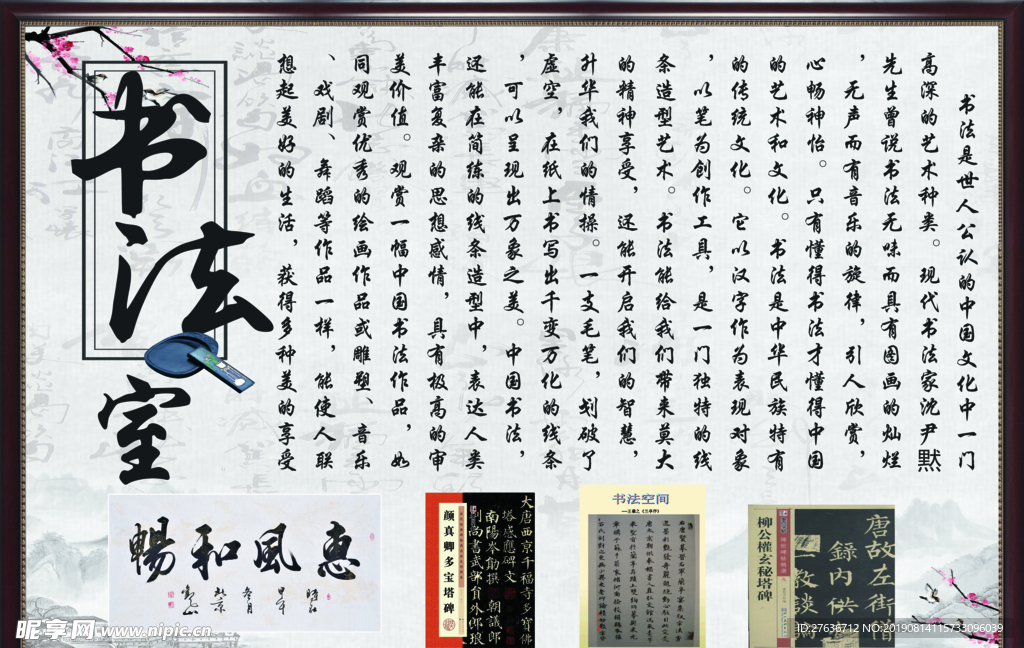 书法室
书法是世人公认的中国文化中一门
高深的艺术种类。现代书法家沈尹默
先生曾说书法无味而具有图画的灿烂
，无声而有音乐的旋律，引人欣赏，
心畅神怡。只有懂得书法才懂得中国
的艺术和文化。书法是中华民族特有
的传统文化。它以汉字作为表现对象
，以笔为创作工具，是一门独特的线
条造型艺术。书法能给我们带来莫大
的精神享受，还能开启我们的智慧，
升华我们的情操。一支毛笔，划破了
虚空，在纸上书写出千变万化的线条
，可以呈现出万象之美。中国书法，
还能在简练的线条造型中，表达人类
丰富复杂的思想感情，具有极高的审
美价值。观赏一幅中国书法作品，如
同观赏优秀的绘画作品或雕塑、音乐
、戏剧、舞蹈等作品一样，能使人联
想起美好的生活，获得多种美的享受
惠風和暢
颜真卿多宝塔碑
大唐西京千福寺多寳佛
塔感應碑文
南陽岑勛撰 朝議郎
判尚書武部員外郎琅
书法空间
柳公權玄秘塔碑
唐故左街僧
錄内供
教談
昵享网 www.nipic.cn
ID:27636712 NO:20190814115733096039